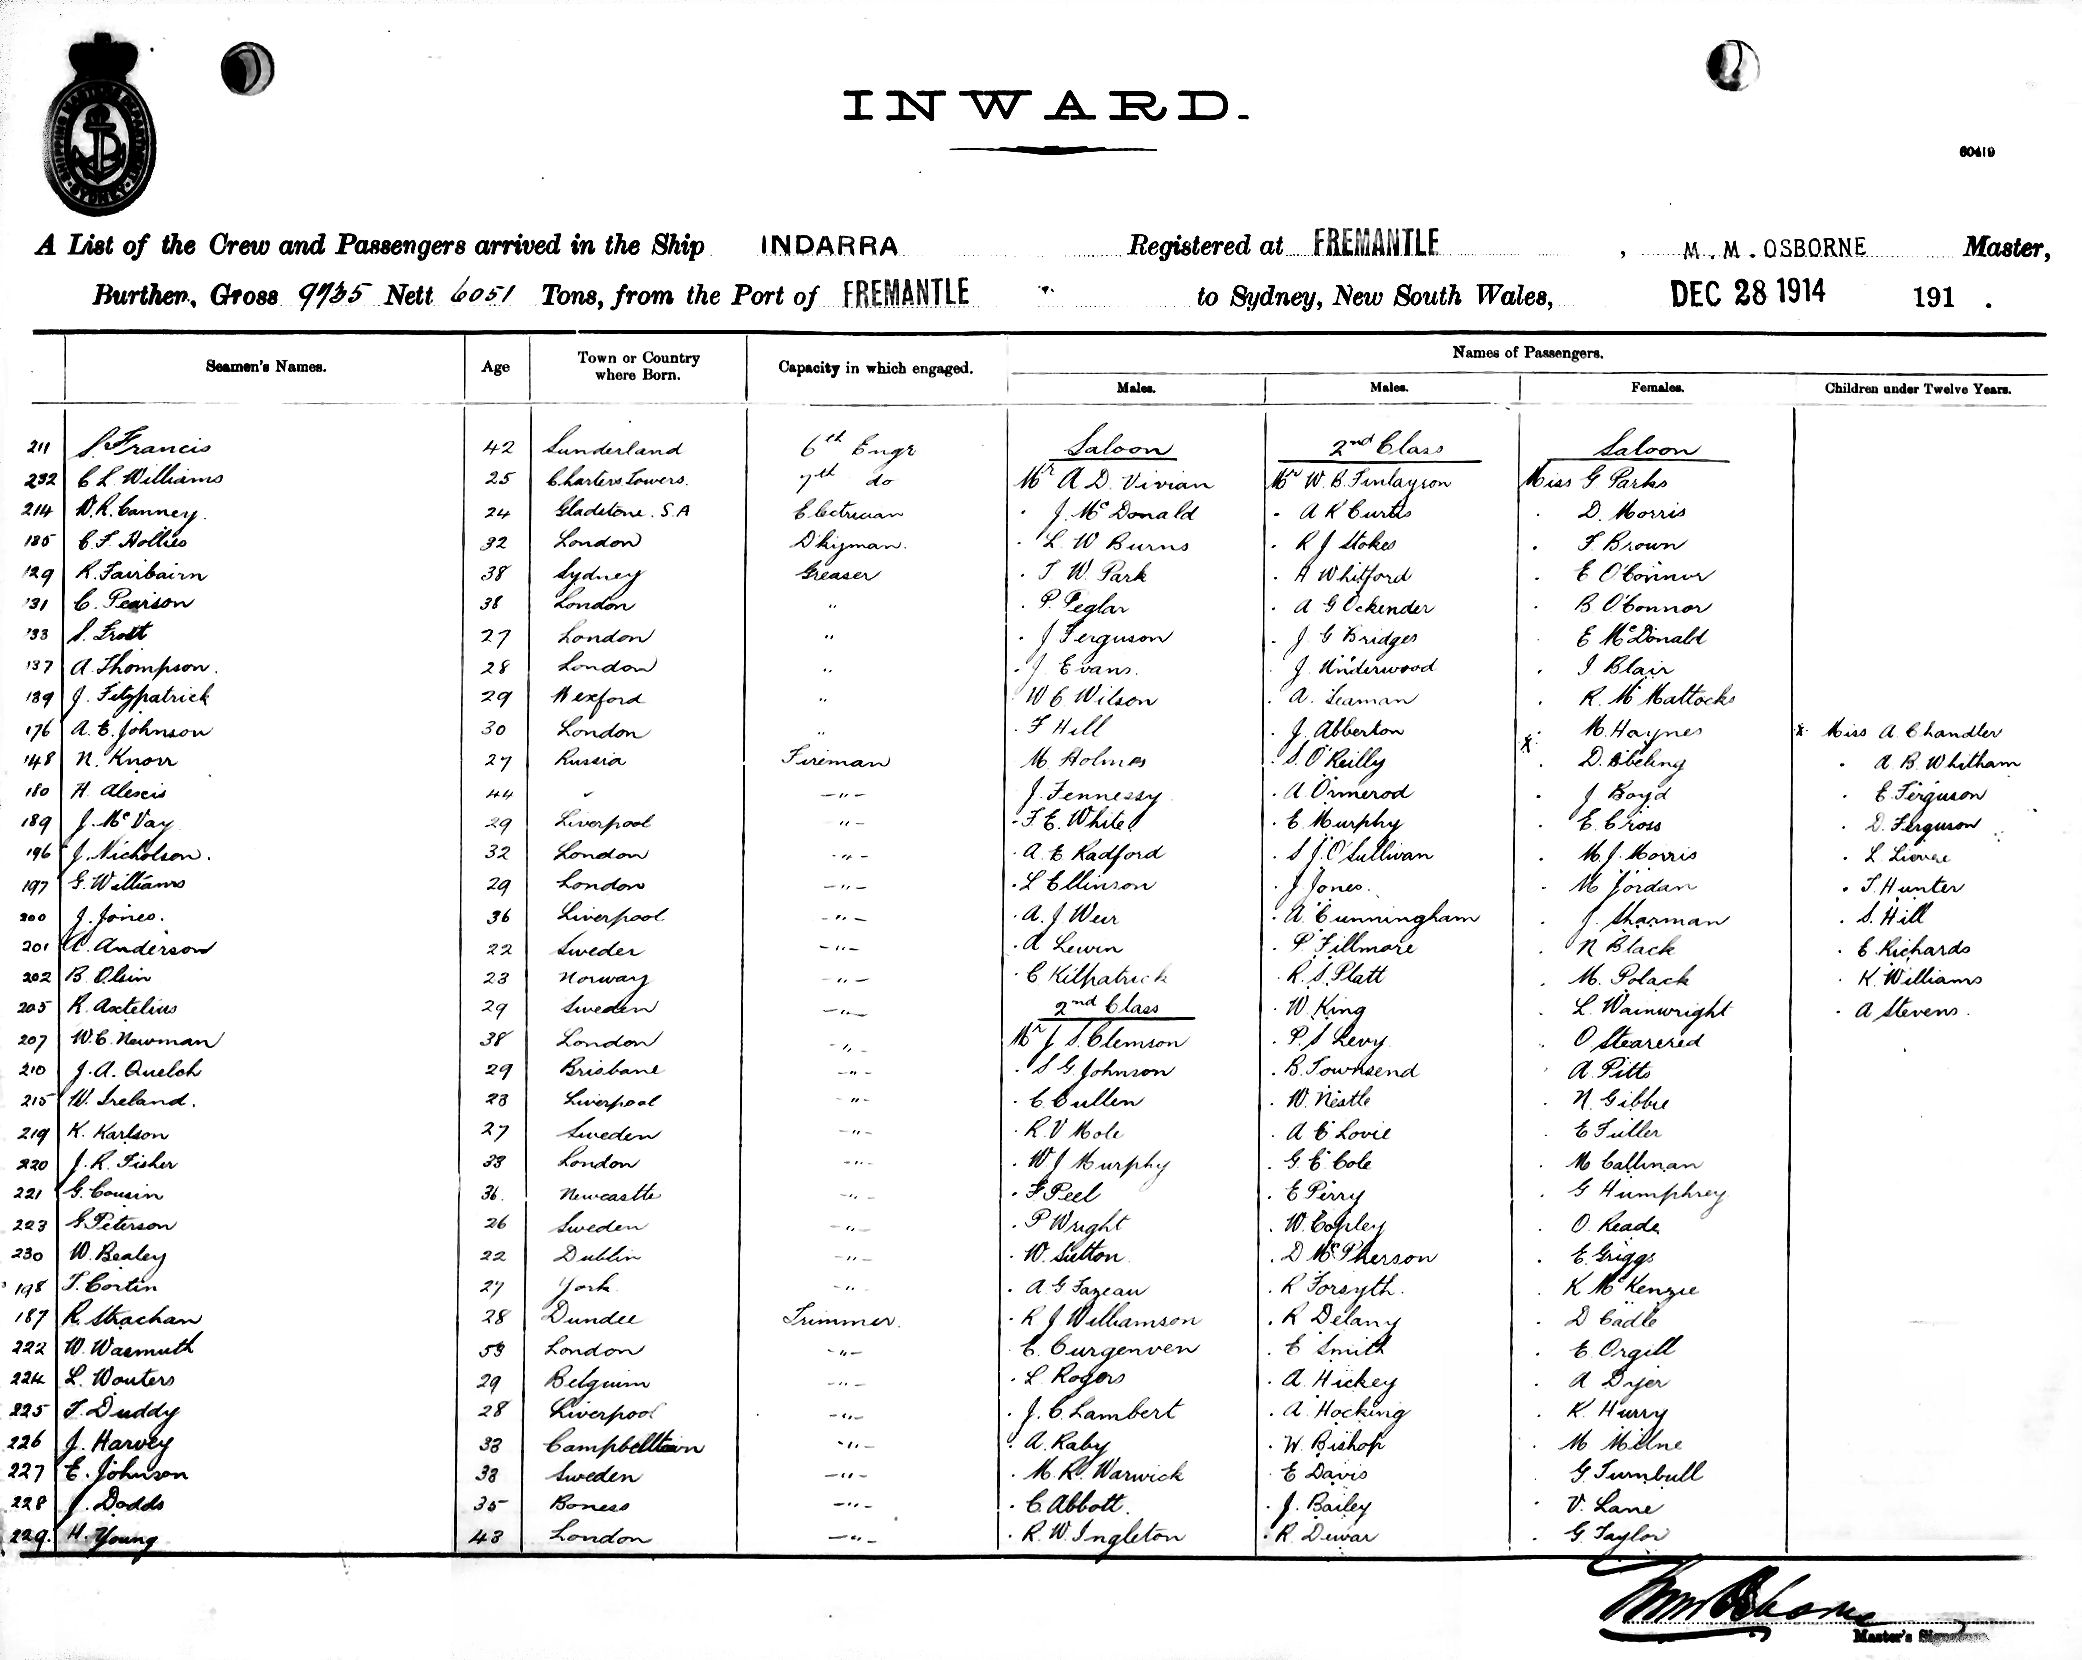 SHIPPING MASTERS DEPARTMENT SYDNEY
INWARD.
60419
A List of the Crew and Passengers arrived in the Ship INDARRA Registered at FREMANTLE, M. M. OSBORNE Master,
Burthen, Gross 9735 Nett 6051 Tons, from the Port of FREMANTLE to Sydney, New South Wales, DEC 28 1914 191 .
Names of Passengers.
Seamen's Names. Age Town or Country where Born. Capacity in which engaged. Males. Males. Females. Children under Twelve Years.
211 S. Francis 42 Sunderland 6th Engr Saloon 2nd Class Saloon
232 C L Williams 25 Charters Towers. 7th do Mr A. D. Vivian Mr W. B. Finlayson Miss G Parks
214 W. R. Canney. 24 Gladstone. S.A Electrician J. McDonald A R Curtis D. Morris
185 C. F. Hollies 32 London D'kyman. L W Burns R J Stokes F Brown
129 R. Fairbairn 38 Sydney Greaser T W. Park A Whitford E O'Connor
131 C. Pearson 38 London " P. Peglar A G Ockender B O'Connor
133 S. Frost 27 London " J Ferguson J. G Bridges E McDonald
137 A. Thompson. 28 London " J Evans. J. Underwood I Blair
139 J. Fitzpatrick 29 Wexford " W C Wilson A. Seaman R. M Mattocks
176 A. E. Johnson 30 London " F Hill J. Abberton M. Haynes x Miss A. Chandler
148 N. Knorr 27 Russia Fireman M Holmes S. O'Reilly x D. Ebeling A. B. Whitham
180 H. Alexis 44 " —"— J. Fennessy A. Ormerod J Boyd E Ferguson
189 J. McVay 29 Liverpool —"— F E. White E. Murphy E. Cross D. Ferguson
196 J. Nicholson. 32 London —"— A. E Radford S J. O'Sullivan M J. Morris L
197 G. Williams 29 London —"— L Ellinson J. Jones. M Jordan T. Hunter
200 J. Jones. 36 Liverpool —"— A. J Weir A. Cunningham J. Sharman S. Hill
201 A. Anderson 22 Sweden —"— A Lewin P. Fillmore N Black E. Richards
202 B. Olsin 23 Norway —"— C Kilpatrick R. S. Platt M. Polack K. Williams
205 R. Axtelius 29 Sweden —"— 2nd Class W. King L. Wainwright A Stevens.
207 W. C. Newman 38 London —"— Mr J S. Clemson P. S Levy O
210 J. A. Quelch 29 Brisbane —"— S G. Johnson B. Townsend A. Pitts
215 W. Ireland. 23 Liverpool —"— C. Cullen W. Nestle N. Gibbie
219 K. Karlson 27 Sweden —"— R. V Mole A E Lovie E Fuller
220 J. R. Fisher 33 London —"— W J Murphy G. E. Cole M Callinan
221 G. Cousin 36. Newcastle —"— F Peel E Perry G Humphrey
223 G. Peterson 26 Sweden —"— P Wright W. Copley O. Reade
230 W. Bealey 22 Dublin —"— W. Sutton D McPherson E. Griggs
198 T. Cortin 27 York —"— A G Fazeau R Forsyth. K McKenzie
187 R. Strachan 28 Dundee Trimmer. R J Williamson R Delany D Cadle
222 W. Wasmuth 53 London —"— C. Curgenven E Smith E. Orgill
224 L. Wouters 29 Belguim —"— L Rogers A. Hickey A Dyer
225 T. Duddy 28 Liverpool —"— J. C. Lambert A. Hocking K. Hurry
226 J. Harvey 33 Campbelltown —"— A. Raby W. Bishop M Milne
227 E. Johnson 33 Sweden —"— M. R. Warwick E Davis G. Turnbull
228 J. Dodds 35 Boness —"— C. Abbott. J. Bailey V. Lane
229. H. Young 43 London —"— R. W. Ingleton R Dewar G Taylor
Master's Signature